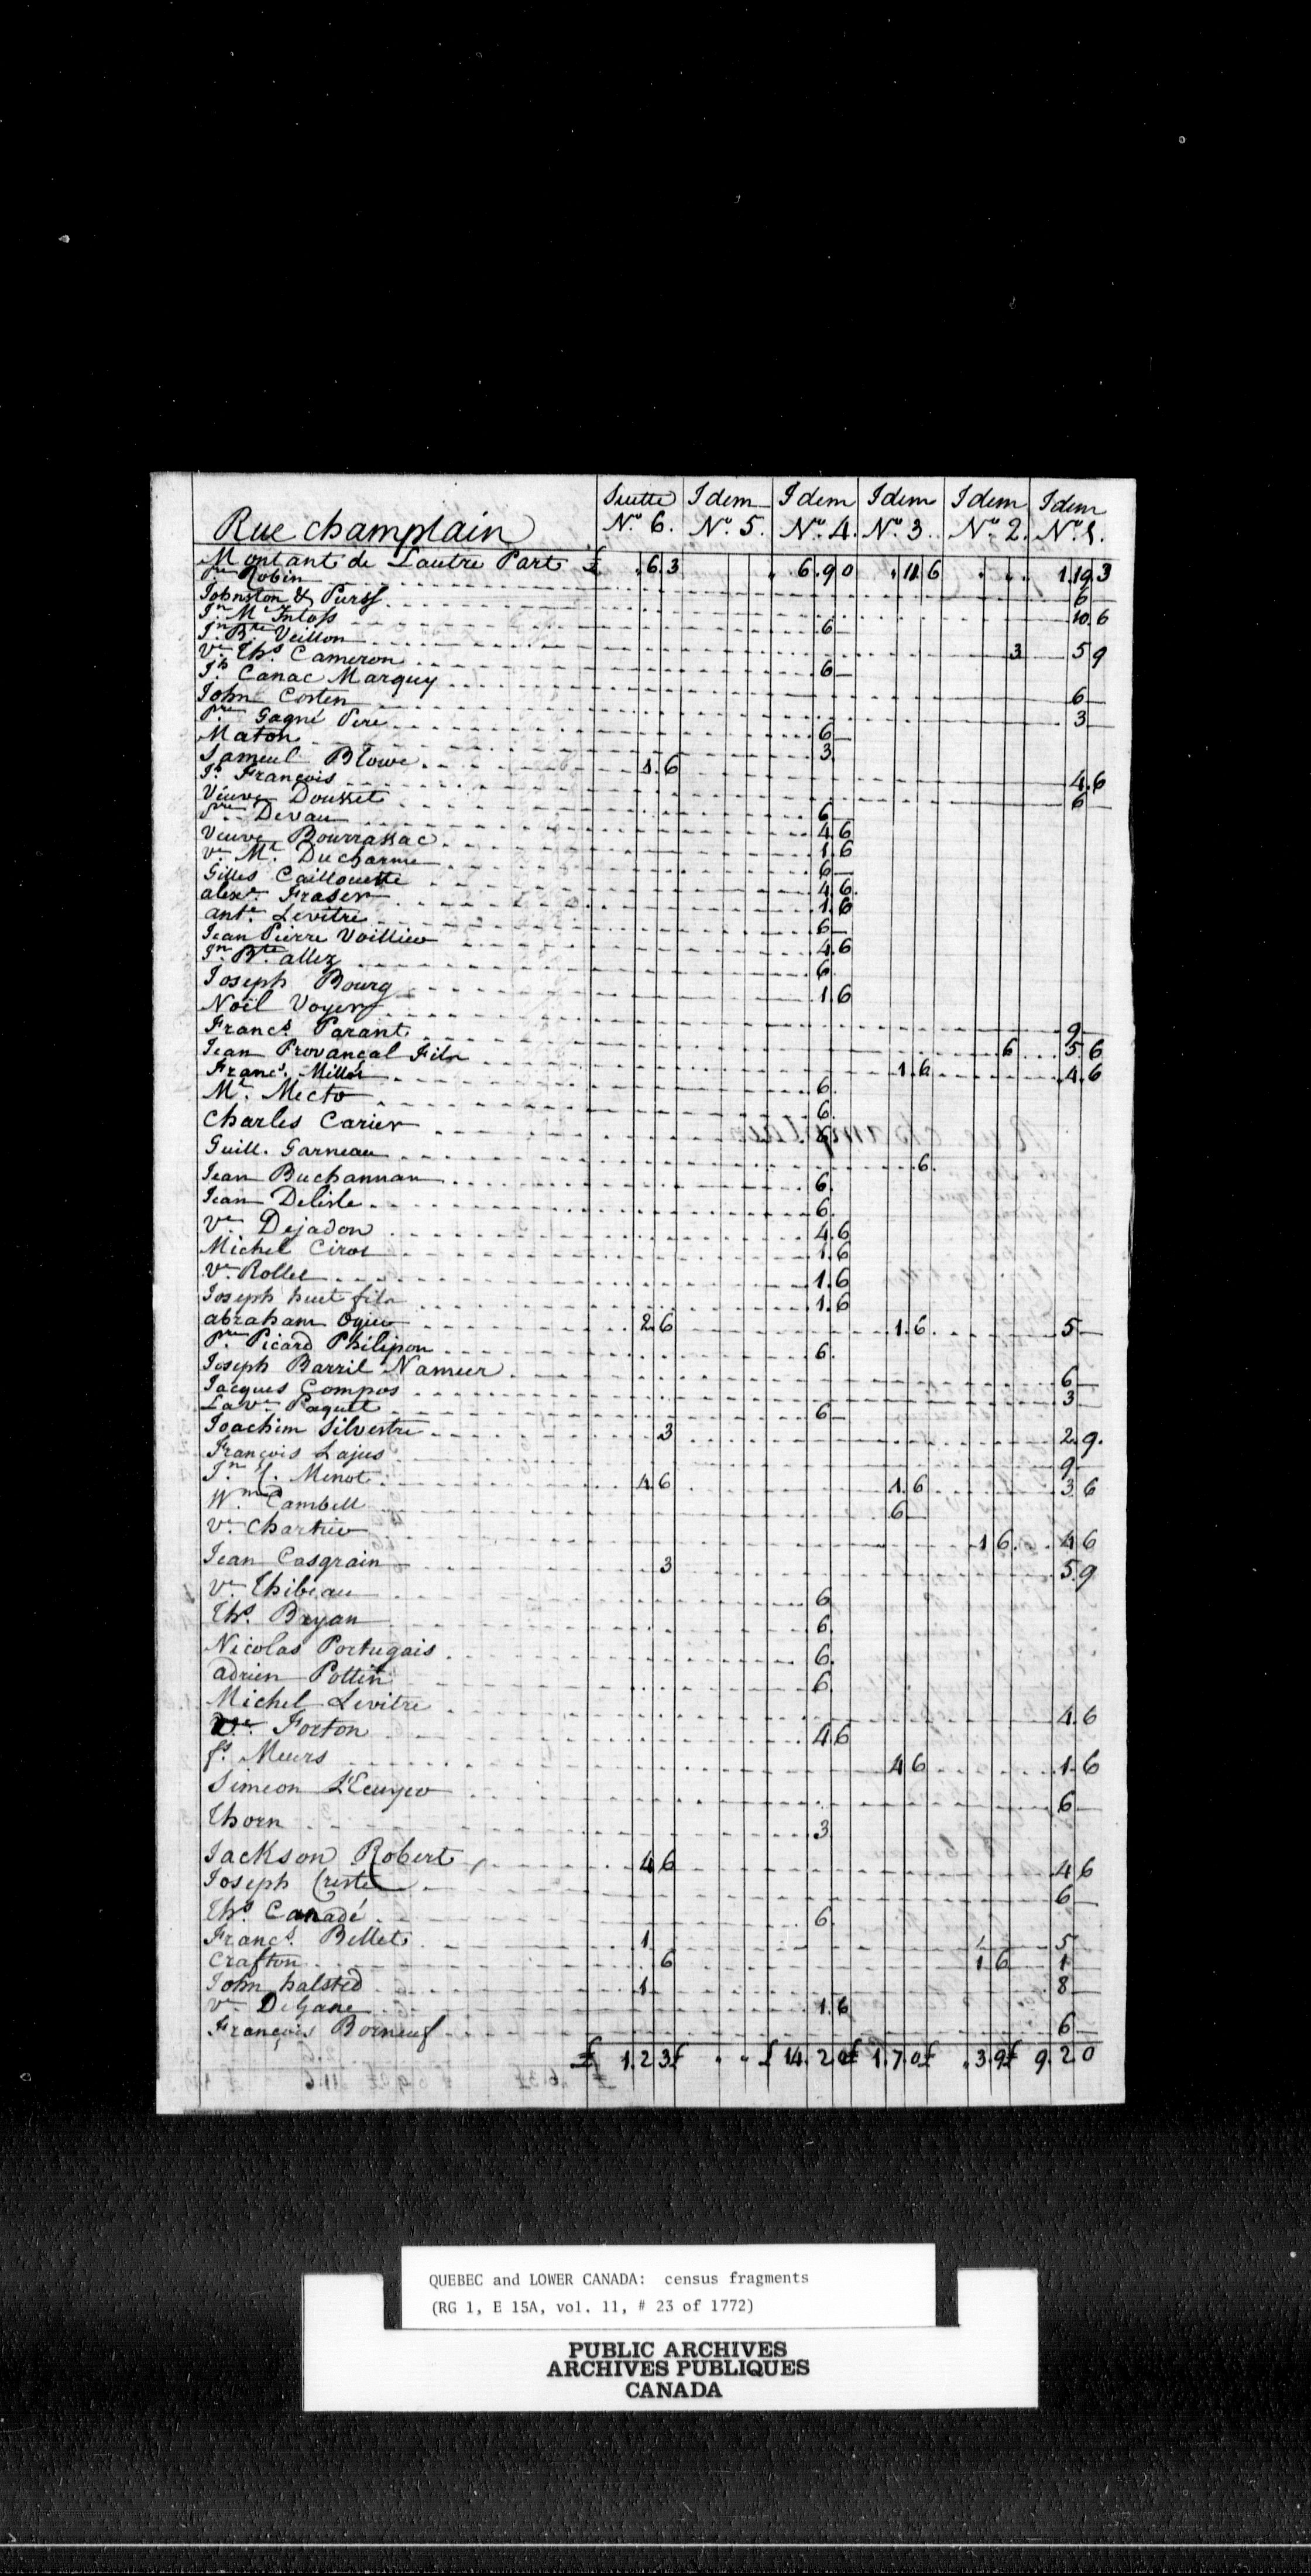 Suitte Idem Idem Idem Idem Idem
Rue champlain No 6. No 5. No 4. No 3. No 2. No 1.
Montant de Lautre Part £ . 6. 3 . 6. 9 0 . 11. 6 . . . 1. 19. 3
pre Robin 6
Johnston & Purss 10. 6
Jn Mc Intosh 6
Jn Bte Veillon 3 5 9
Ve Ths Cameron 6
Jh Canac Marquy 6
John Costen 3
pre Gagné Pere 6
Maton 3
Sameul Blowe 1. 6 4. 6
Jh François 6
Veuve Dousset 6
pre Devau 4 6
Veuve Bourrassac 1. 6
Ve Mt Ducharme 6
Gilles Caillouette 4 6.
alexr Fraser 1. 6
ante Levitre 6
Jean Pierre Voillieu 4 6
Jn Bte allez 6
Joseph Bourg 1. 6
Noël Voyer 9
Francs Parant 6 5 6
Jean Provançal Fils 1. 6 4. 6
Francs. Millor 6.
Mr. Mecto 6.
Charles Carier 6
Guill. Garneau 6.
Jean Buchannan 6.
Jean Delisle 6.
Ve Dejadon 4. 6
Michel Cirot 1. 6
Ve Rollet 1. 6
Joseph huet fils 1. 6
abraham Ogier 2. 6 1. 6. 5
pre Picard Philipon 6.
Joseph Barril Nameur 6
Jacques Compos 3
La ve Paquet 6
Joachim Silvestre 3 2. 9.
François Lajus 9
Jn Y. Menot 4. 6 1. 6 3 6
Wm Cambell 6
Ve Chartier 1 6. 4 6
Jean Casgrain 3 5. 9
Ve Thibeau 6
Ths. Bryan 6.
Nicolas Portugais 6.
adrien Pottin 6
Michel Levitre 4. 6
Ve Forton 4. 6
fs Meurs 4 6 1. 6
Simeon L'Ecuyer 6
Thorn 3
Jackson Robert 4. 6 4 6
Joseph Crete 6
Ths Canadé 6
Francs Bellet 1 5
Crafton 6 1 6 1
John halsted 1 8
Ve DeGane 1. 6
François Borneuf 6
£ 1. 2. 3 £ . . £ 14. 2 0 £ 1. 7. 0 £ . 3. 9 £ 9. 2 0
QUEBEC and LOWER CANADA: census fragments
(RG 1, E 15A, vol. 11, # 23 of 1772)
PUBLIC ARCHIVES
ARCHIVES PUBLIQUES
CANADA